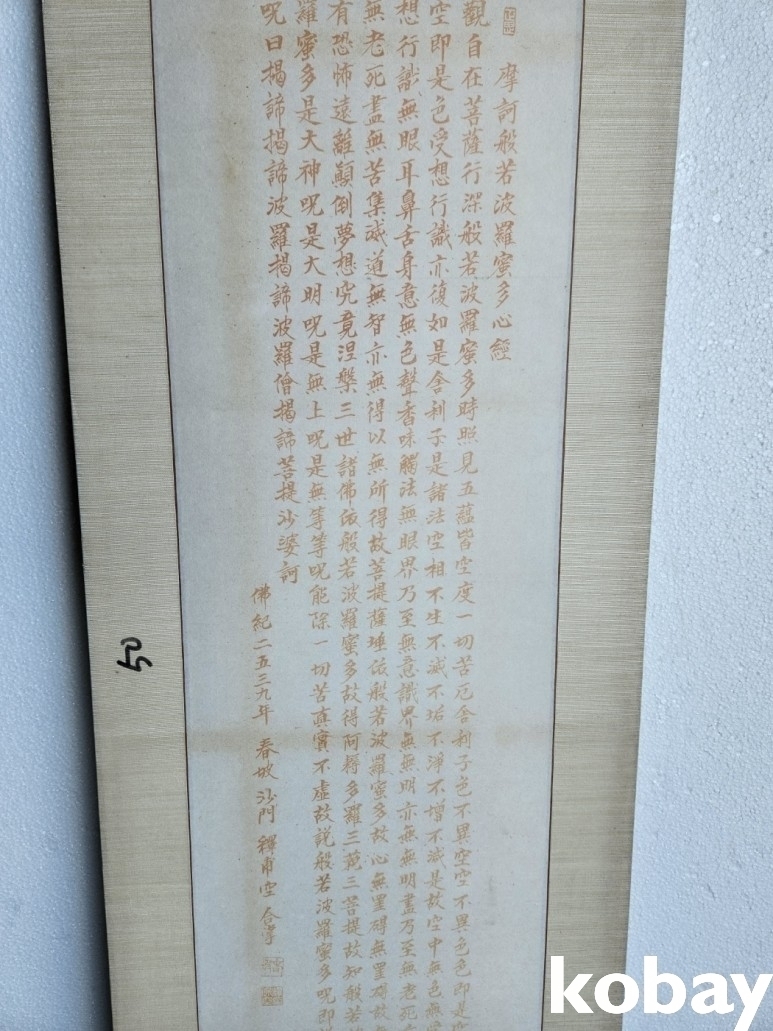 摩訶般若波羅蜜多心經
觀自在菩薩行深般若波羅蜜多時照見五蘊皆空度一切苦厄舍利子色不異空空不異色色即是
空即是色受想行識亦復如是舍利子是諸法空相不生不滅不垢不淨不增不減是故空中無色無
想行識無眼耳鼻舌身意無色聲香味觸法無眼界乃至無意識界無無明亦無無明盡乃至無老死
無老死盡無苦集滅道無智亦無得以無所得故菩提薩埵依般若波羅蜜多故心無罣碍無罣碍故
有恐怖遠離顛倒夢想究竟涅槃三世諸佛依般若波羅蜜多故得阿耨多羅三藐三菩提故知般若
羅蜜多是大神呪是大明呪是無上呪是無等等呪能除一切苦真實不虛故說般若波羅蜜多呪即
呪曰揭諦揭諦波羅揭諦波羅僧揭諦菩提沙婆訶
佛紀二五三九年 春坡 沙門 釋甫空 合掌
50
kobay